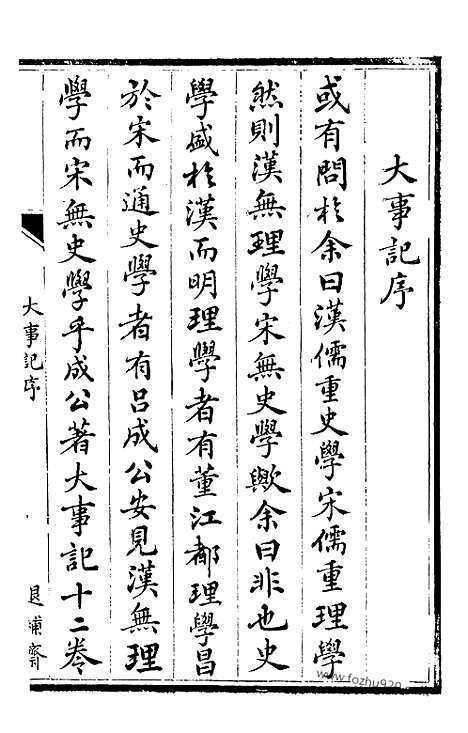 大事記序
或有問於余曰漢儒重史學宋儒重理學
然則漢無理學宋無史學歟余曰非也史
學盛於漢而明理學者有董江都理學昌
於宋而通史學者有呂成公安見漢無理
學而宋無史學乎成公著大事記十二卷
大事記序
退補齋
www.fozhu920.com